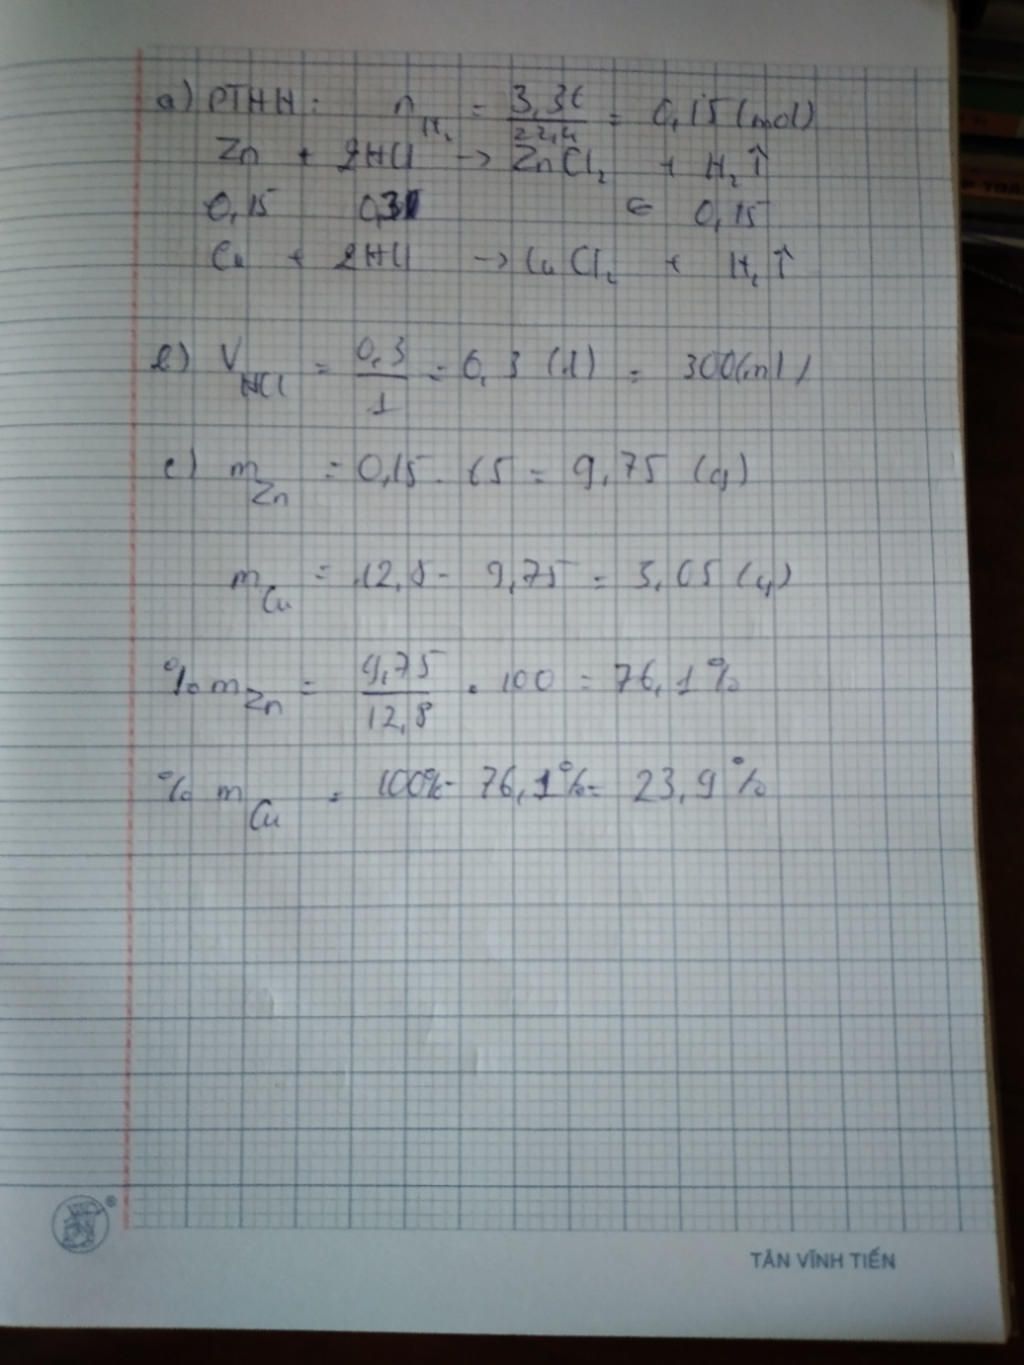 a) PTHH: n H₂ = 3,36 / 22,4 = 0,15 (mol)
Zn + 2HCl → ZnCl₂ + H₂↑
0,15 0,3 ← 0,15
Cu + 2HCl → CuCl₂ + H₂↑
b) V HCl = 0,3 / 1 = 0,3 (l) = 300(ml)
c) m Zn = 0,15 . 65 = 9,75 (g)
m Cu = 12,8 - 9,75 = 3,05 (g)
% m Zn = 9,75 / 12,8 . 100 = 76,1%
% m Cu = 100% - 76,1% = 23,9%
TÂN VĨNH TIẾN